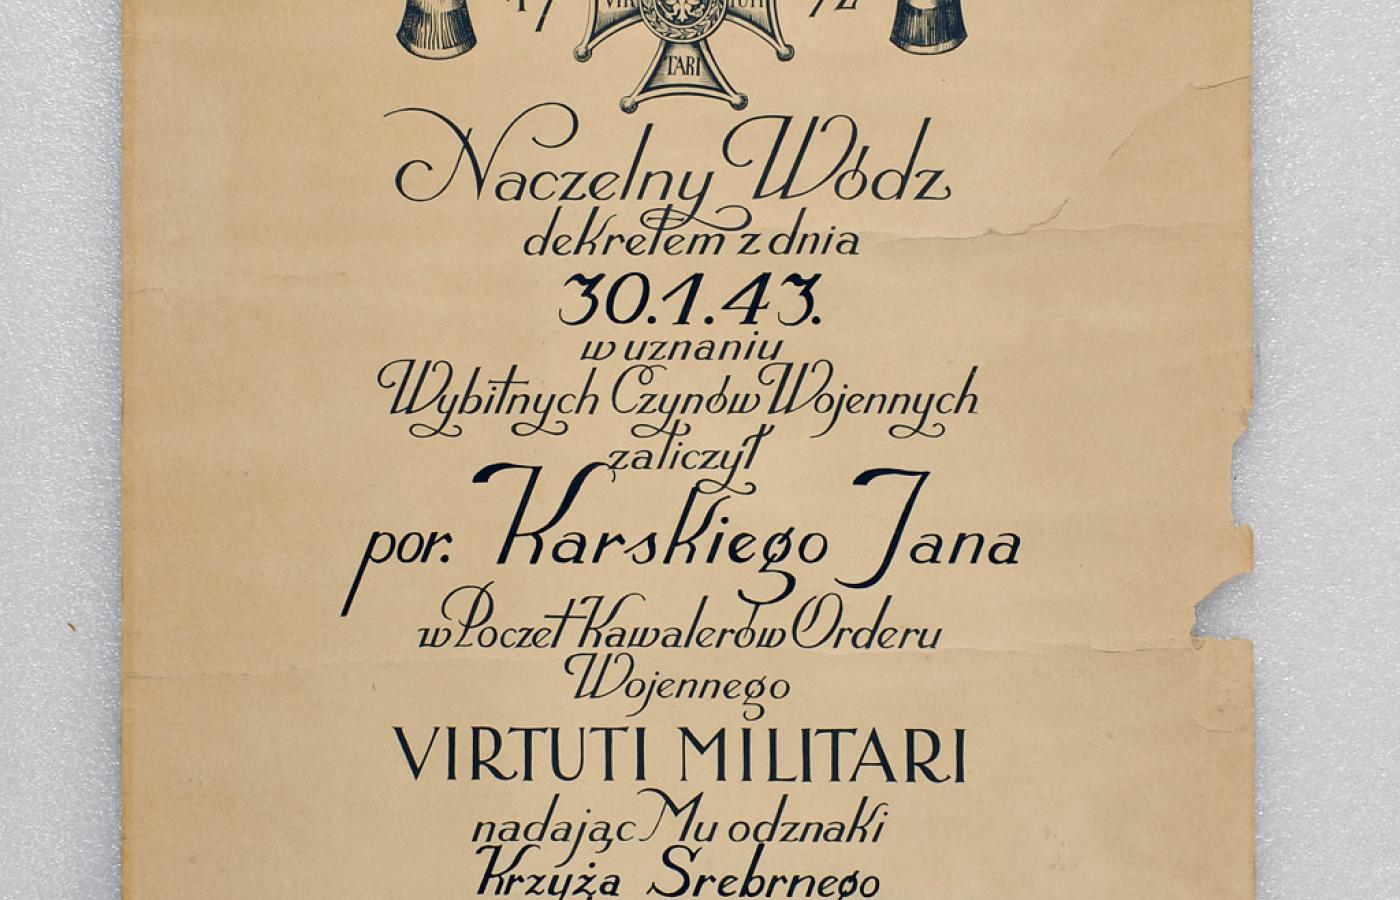 17 92
VIR TUTI
TARI
Naczelny Wódz
dekretem z dnia
30.1.43.
w uznaniu
Wybitnych Czynów Wojennych
zaliczył
por. Karskiego Jana
w Poczet Kawalerów Orderu
Wojennego
VIRTUTI MILITARI
nadając Mu odznaki
Krzyża Srebrnego